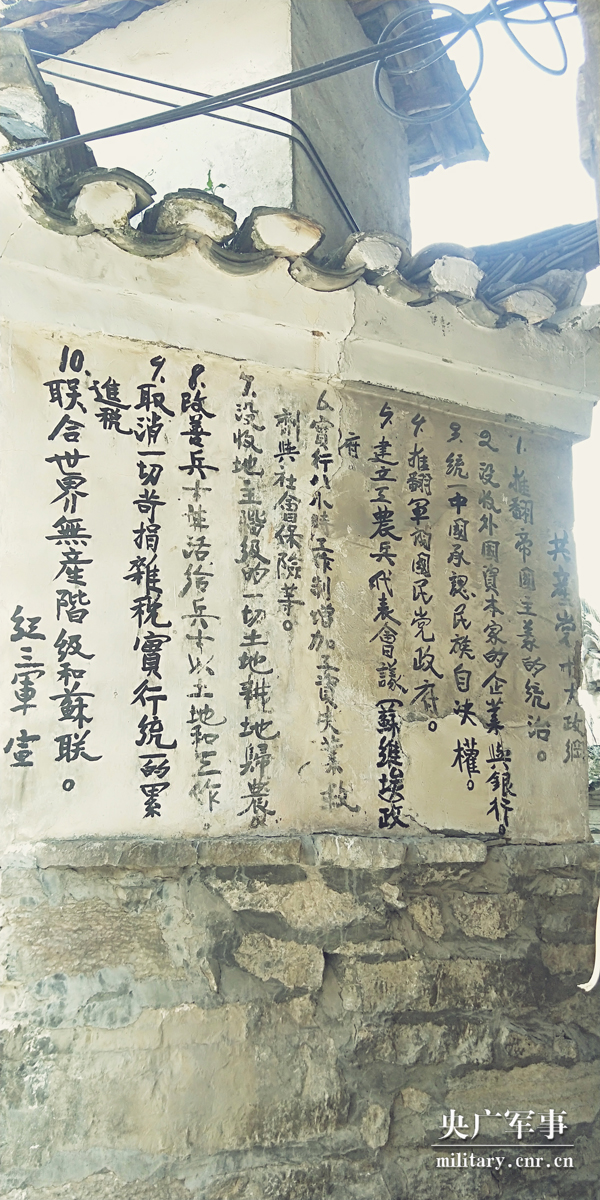 共産党十大政綱
1. 推翻帝國主義的统治。
2. 没收外國資本家的企業與銀行。
3. 统一中國承認民族自决權。
4. 推翻軍閥國民党政府。
5. 建立工農兵代表會議(蘇維埃政
府。
6. 實行八小時工作制增加工資失業救
劑與社會保險等。
7. 没收地主階級的一切土地耕地歸農。
8. 改善兵士生活给兵士以土地和工作。
9. 取消一切苛捐雜税實行统一的累
進税
10. 联合世界無産階级和蘇联。
红三軍宣
央广军事
military.cnr.cn